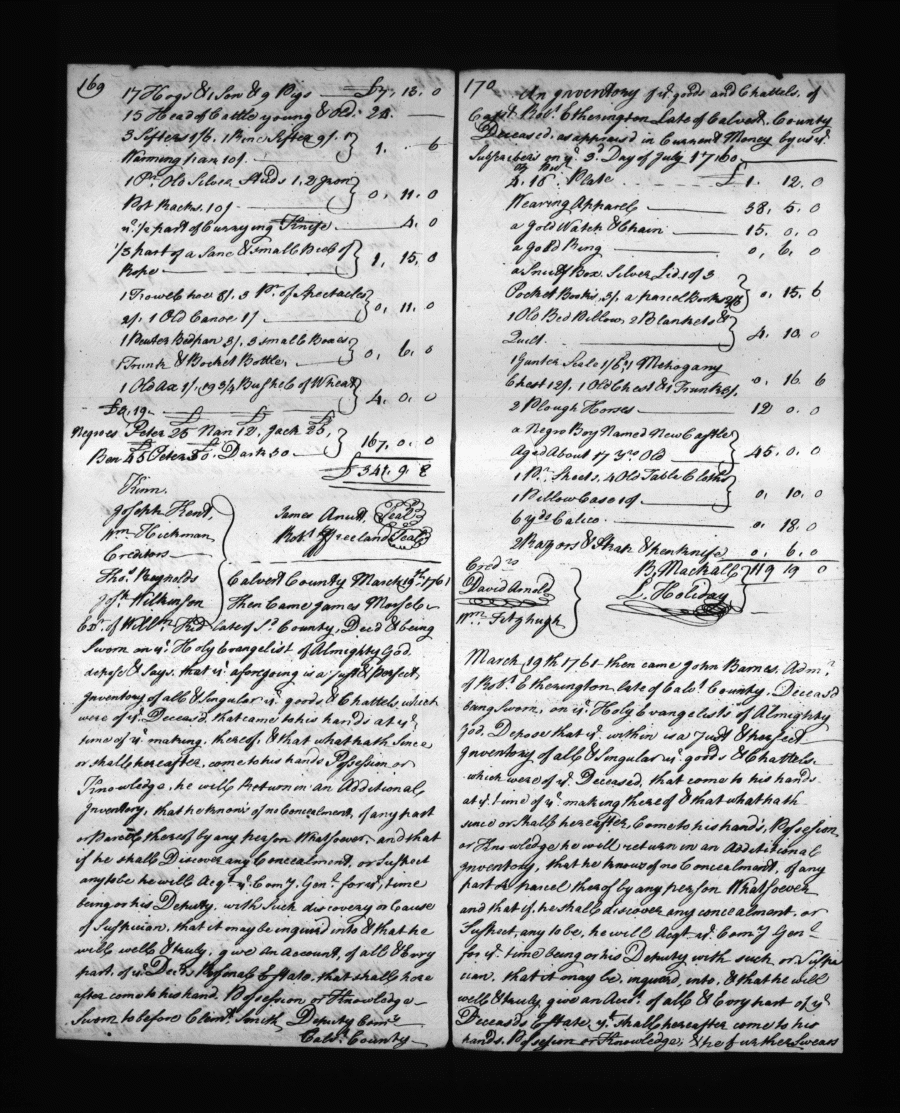 169
17 Hogs & 1 Sow & 9 Pigs £7, 13. 0
15 Head of Cattle young & Old. 24. —
3 Sifters 1/6, 1 Brinc Sifter 9/. 1
Warming pan 10/. 1. 6
1 Pr. Old Silver Studs 1, 2 Iron
Pot Racks. 10/ 0, 11. 0
ye. ½ part of Currying Knife 4. 0
⅓ part of a Sane & small Piece of
Rope 1, 15, 0
1 Trowel hoe 8/. 3 Pr. of Spectacles
2/. 1 Old Canoe 1/ 0, 11. 0
1 Pewter Bedpan 3/. 3 small Boxes
1 Trunk & Pocket Bottle, 0, 6. 0
1 Old Ax 1/. 19¾ Bushels of Wheat
£3, 19. 4. 0. 0
Negroes Peter 25 Nan 12, Jack 25,
Ben 45 Peter 30. Dark 30 167, 0. 0
£341. 9. 8
Kinn.
Joseph Kent,
Wm. Hickman
Creditors
James Anutt, Seal
Robt. Freeland Seal
Thos. Reynolds
Josh. Wilkinson
Calvert County March 19th. 1761
Then Came James Morsel
Exr. of Willm. Kid late of Sd. County, Decd & being
Sworn on ye. Holy Evangelist of Almighty God.
depose & Says. that ye. aforegoing is a Just & perfect,
Inventory of all & singular ye. goods & Chattels which
were of ye. Deceasd. that came to his hands at ye.
time of ye. making, thereof, & that what hath Since
or shall hereafter, come to his hands Possesion or
Knowledge, he will Return in an Additional
Inventory, that he knows of no Concealment, of any part
or Parcel thereof by any person Whatsoever, and that
if he shall Discover any Concealment, or Suspect
any to be he will Acqt. ye. Comy. Genl. for ye. time
being or his Deputy, with Such discovery or Cause
of Suspicion, that it may be inquired into & that he
will well & truly, give an Account, of all & Every
part, of ye. Decds. Personal Estate, that shall here
after come to his hand, Possession or Knowledge
Sworn to before Clemt. Smith Deputy Comry
Calvt. County
170
An Inventory of ye. goods and Chattels. of
Capt. Robt. Etherington Late of Calvert, County
Deceased, as appraised in Current Money by us ye.
Subscribers on ye. 3d. Day of July 1760.
4. 16. Plate £1. 12. 0
Wearing Apparel 38, 5. 0
a gold Watch & Chain 15. 0, 0
a gold Ring 0, 6, 0
a Snuff Box Silver Lid 10/ 3
Pocket Books, 3/. a parcel Books 2/6 0, 15. 6
1 Old Bed Pillow, 2 Blankets &
Quilt. 4. 10. 0
1 Gunter Scale 1/6. 1 Mohogany
Chest 12/. 1 Old Chest & 1 Trunk 3/. 0. 16. 6
2 Plough Horses 12 0. 0
a Negro Boy Named New Castle
Aged About 17 yrs Old 45. 0. 0
1 Pr. Sheets, 4 Old Table Cloths
1 Pillow Case 10/ 0, 10. 0
6 yds Calico 0. 18. 0
2 Razors & Strap & penknife 0. 6. 0
Credrs B. Mackall 119 19 0
David Arnold
L. Holiday
Wm. Fitzhugh
March 19th 1761 then came John Barnes. Admr.
of Robt. Etherington late of Calvt. County. Deceasd
being Sworn, on ye. Holy Evangelists of Almighty
God. Depose that ye. within is a Just & perfect
Inventory of all & Singular ye. goods & Chattels
which were of ye. Deceased, that come to his hands
at ye. time of ye. making thereof & that what hath
since or shall hereafter Come to his hands, Possession
or Knowledge he will return in an Additional
Inventory, that he knows of no Concealment, of any
part or parcel thereof by any person Whatsoever
and that if, he shall discover any concealment, or
Suspect, any to be, he will Acqt. ye. Comy Genl
for ye. time being or his Deputy with such, or Suspi
cian, that it may be, inquired, into, & that he will
well & truly give an Acct. of all & Every part of ye
Deceaseds Estate, yt. shall hereafter come to his
hands, Possession or Knowledge, & he further Swears